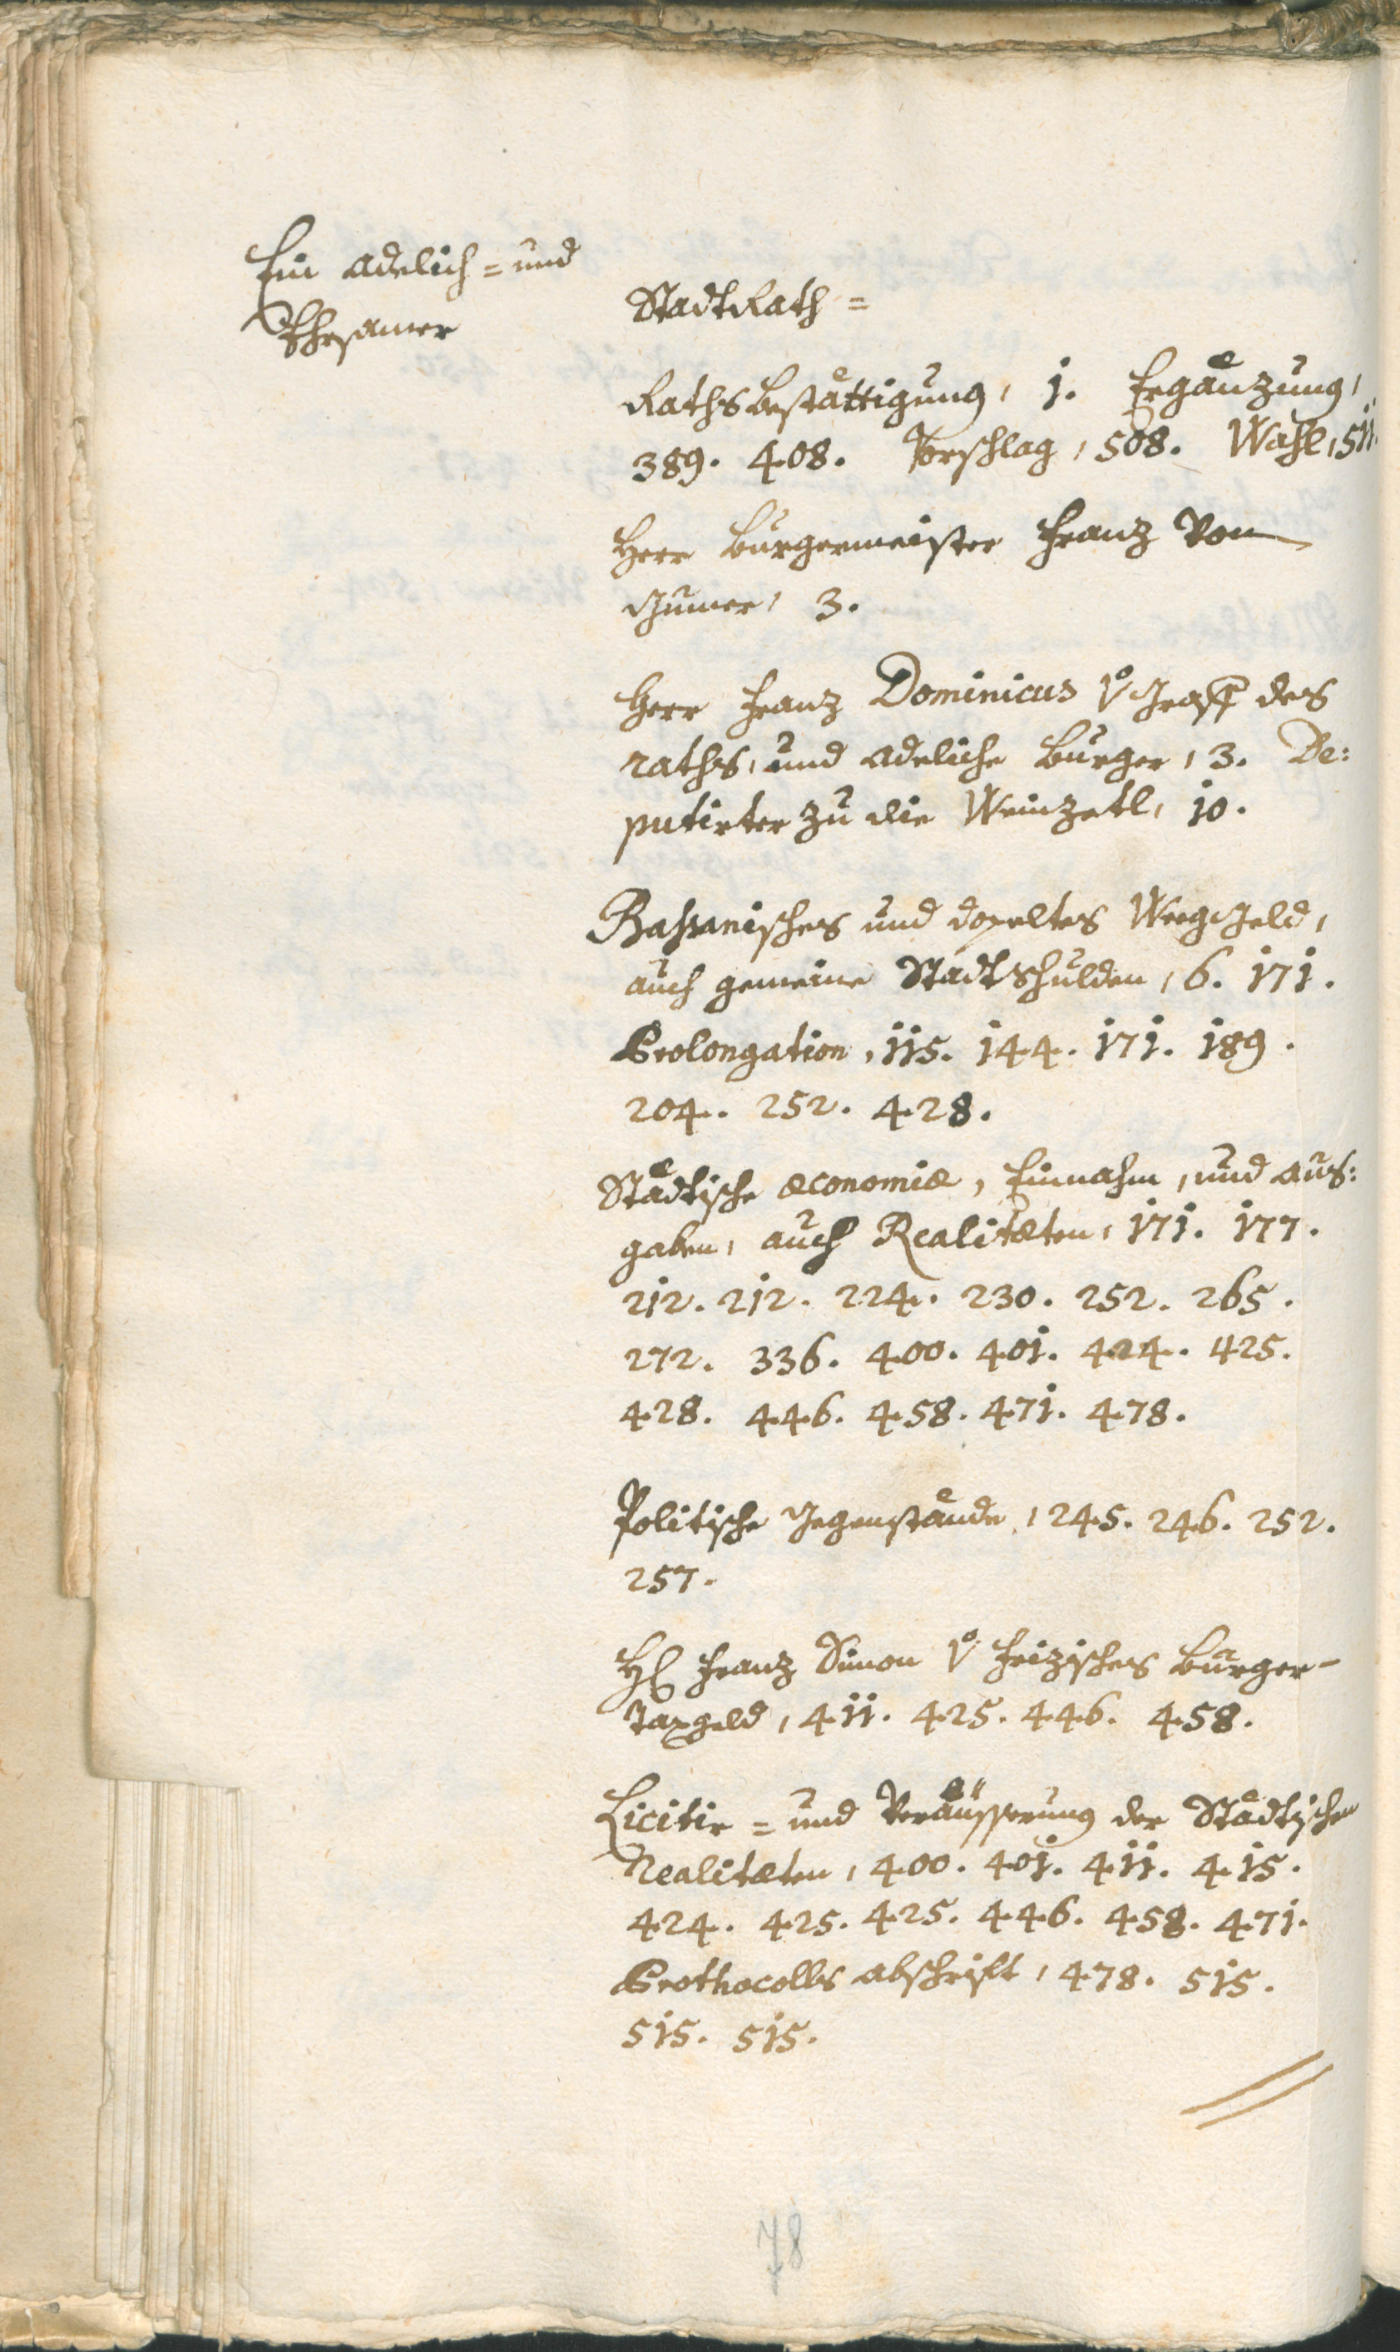 Ein adelich= und
Ehrsamer
StadtRath=
Rathsbestättigung, 1. Ergänzung,
389. 408. Vorschlag, 508. Wahl, 511.
Herr Burgermeister Franz Von
Gumer, 3.
Herr Franz Dominicus V. des
raths, und adeliche Burger, 3. De:
putirter zu die Weinzetl, 10.
Bassanisches und dopeltes WeegGeld,
auch gemeine Stadtschulden, 6. 171.
Prolongation, 115. 144. 171. 189.
204. 252. 428.
Städtische œconomiæ, Einnahm, und aus:
gaben, auch Realitæten, 171. 177.
212. 212. 224. 230. 252. 265.
272. 336. 400. 401. 424. 425.
428. 446. 458. 471. 478.
Politische Gegenstände, 245. 246. 252.
257.
H Franz Simon V. Burger-
Taxgeld, 411. 425. 446. 458.
Licitir= und Veräusserung der Städtischen
Realitæten, 400. 401. 411. 415.
424. 425. 425. 446. 458. 471.
Prothocolls abschrift, 478. 515.
515. 515.
78